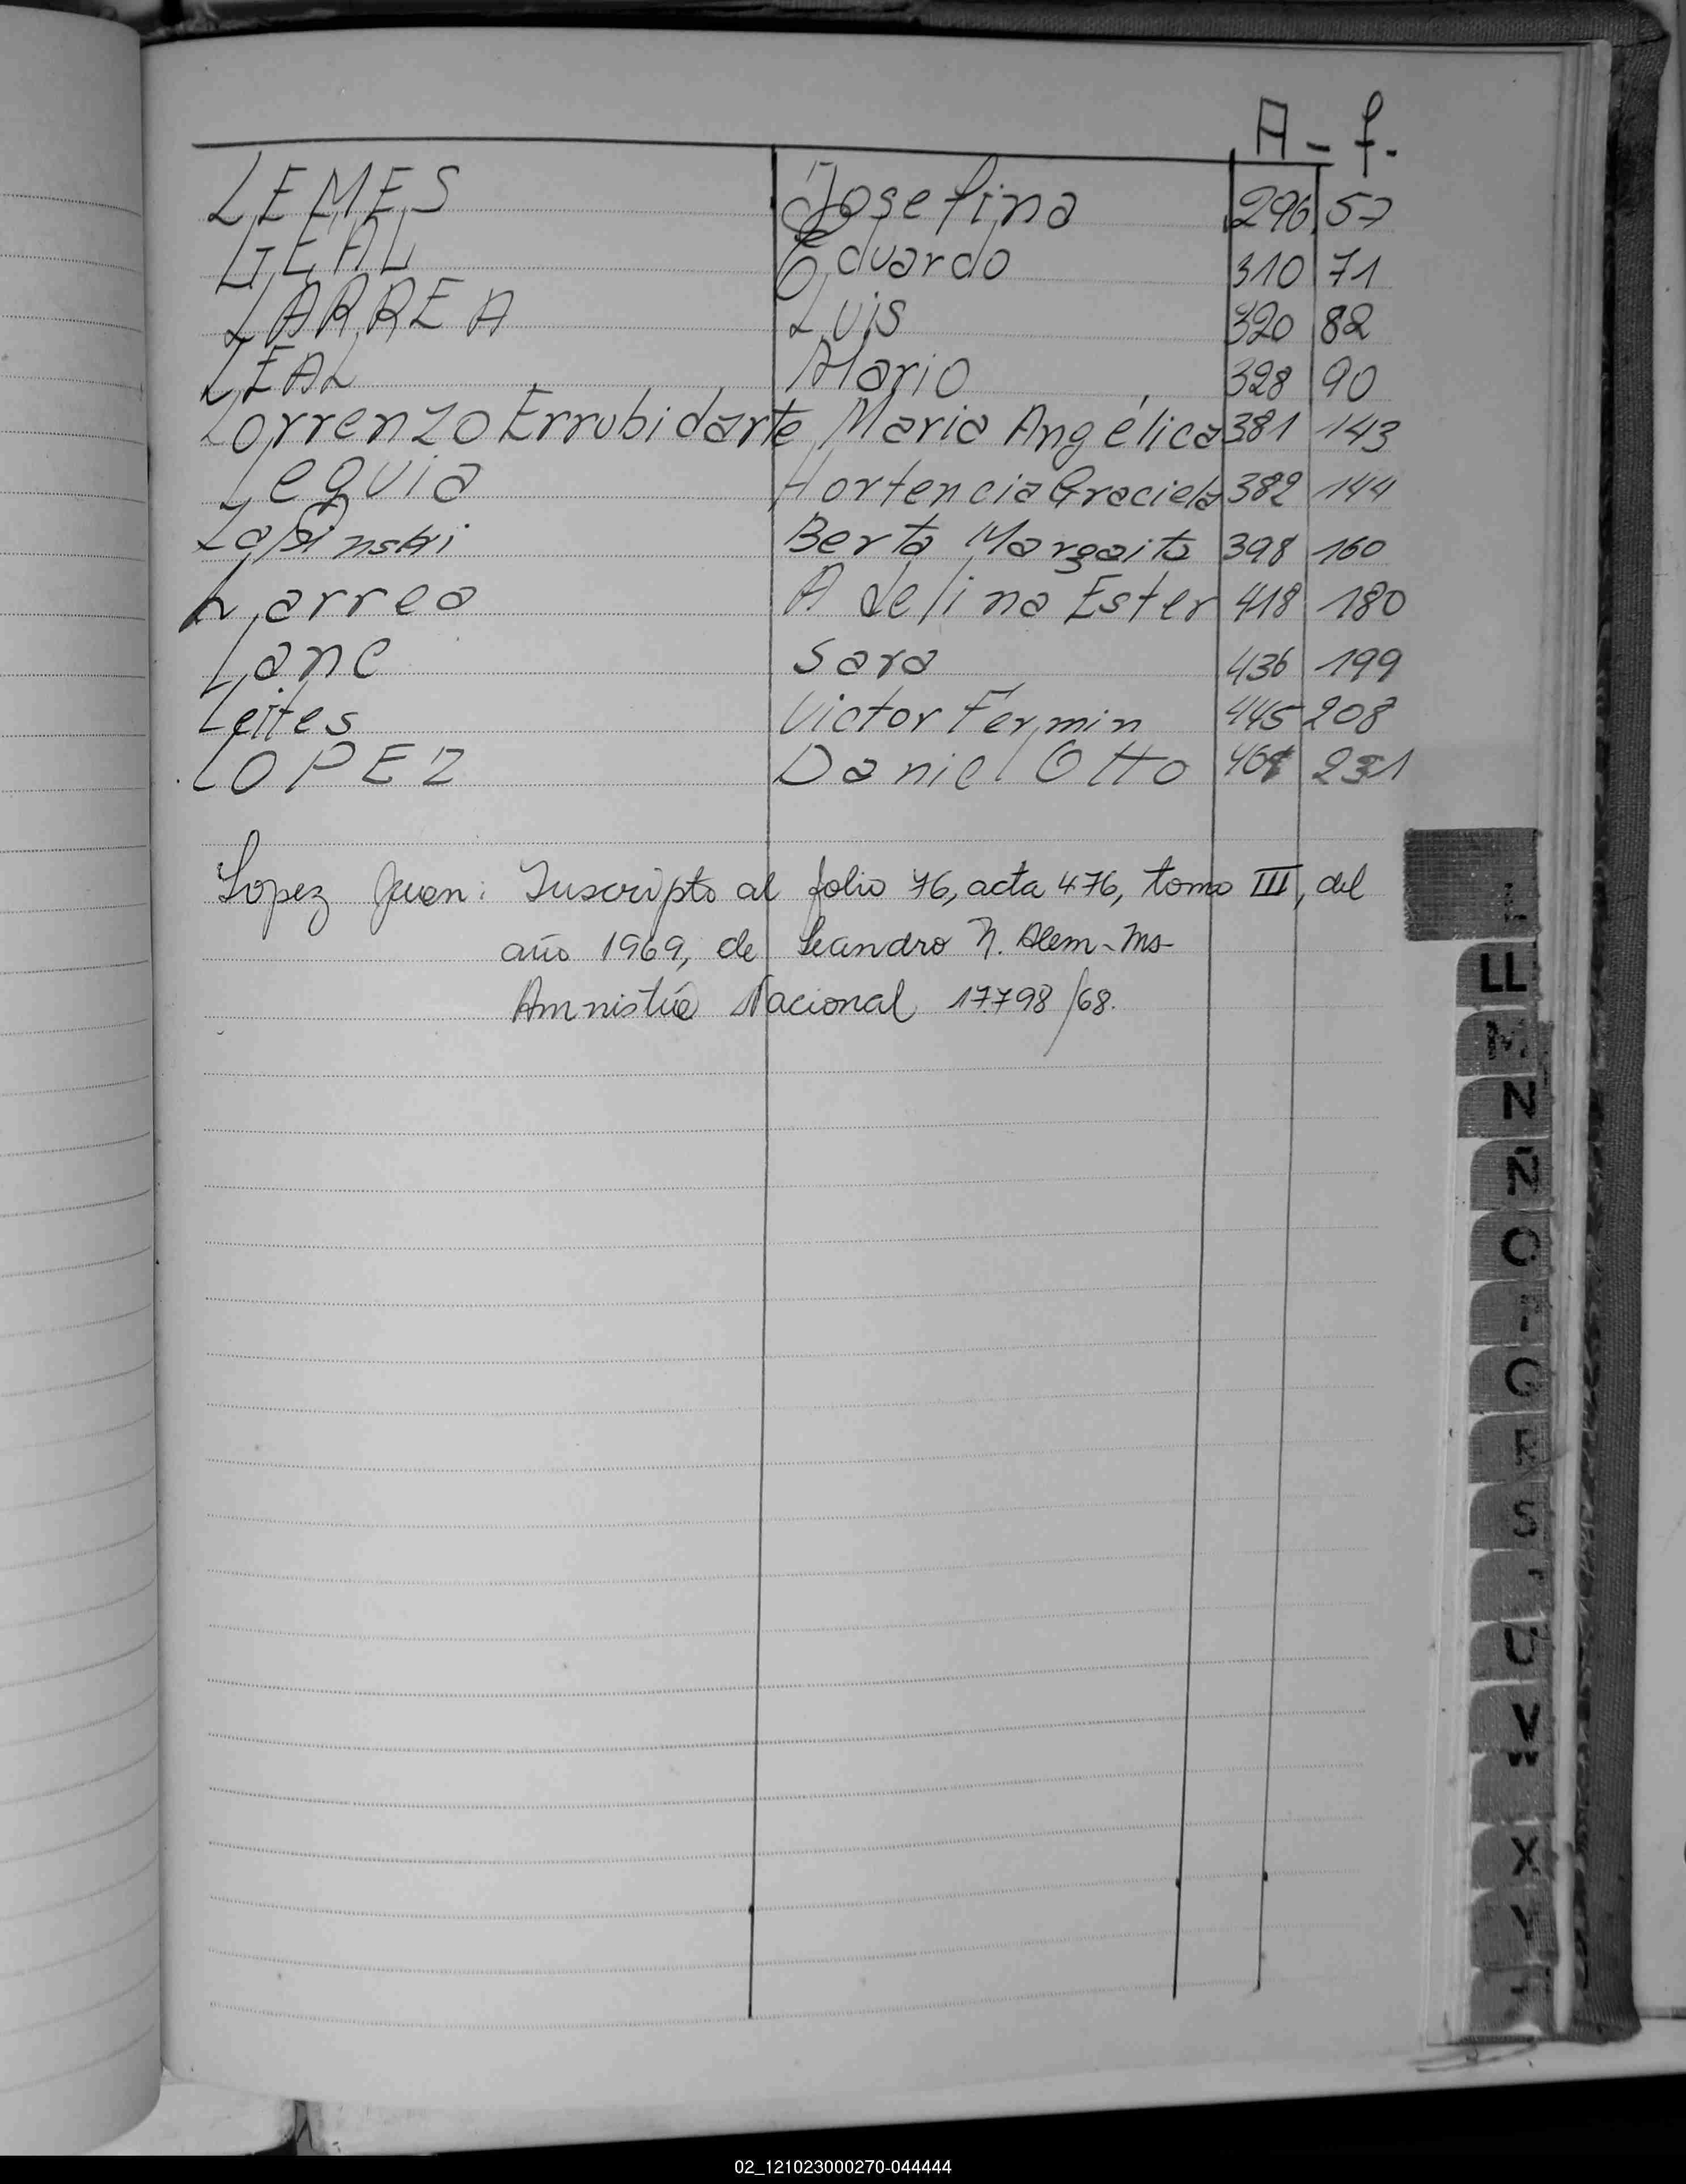 A - f.
LEMES Josefina 296 57
LEAL Eduardo 310 71
LARREA Luis 320 82
LEAL Mario 328 90
Lorrenzo Errubidarte Maria Angélica 381 143
Lequia Hortencia Graciela 382 144
Berta Margaita 398 160
Larrea Adelina Ester 418 180
Lane Sara 436 199
Leites Victor Fermin 445 208
LOPEZ Daniel Otto 231
Lopez Juan: Inscripto al folio 76, acta 476, tomo III, del
año 1969, de Leandro N. Alem-Ms-
Amnistía Nacional 17.798/68.
LL
M
N
Ñ
O
Q
R
S
U
V
W
X
Y
02_121023000270-044444